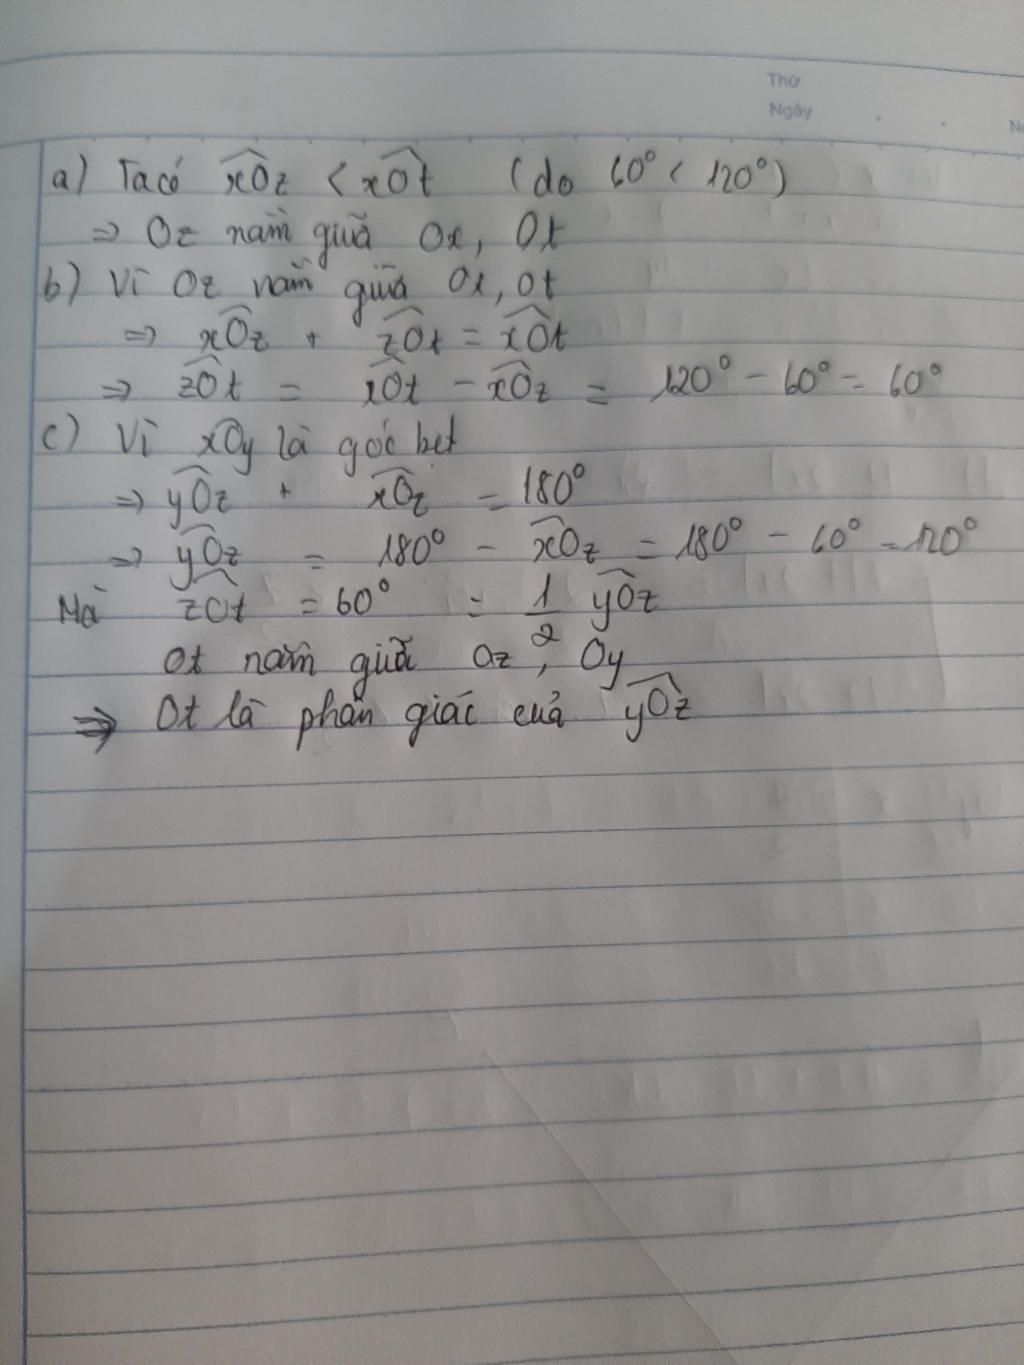 Thứ
Ngày
a) Ta có xOz < xOt (do 60° < 120°)
=> Oz nằm giữa Ox, Ot
b) Vì Oz nằm giữa Ox, Ot
=> xOz + zOt = xOt
=> zOt = xOt - xOz = 120° - 60° = 60°
c) Vì xOy là góc bet
=> yOz + xOz = 180°
=> yOz = 180° - xOz = 180° - 60° = 120°
Mà zOt = 60° = 1/2 yOz
Ot nằm giữa Oz, Oy
=> Ot là phân giác của yOz